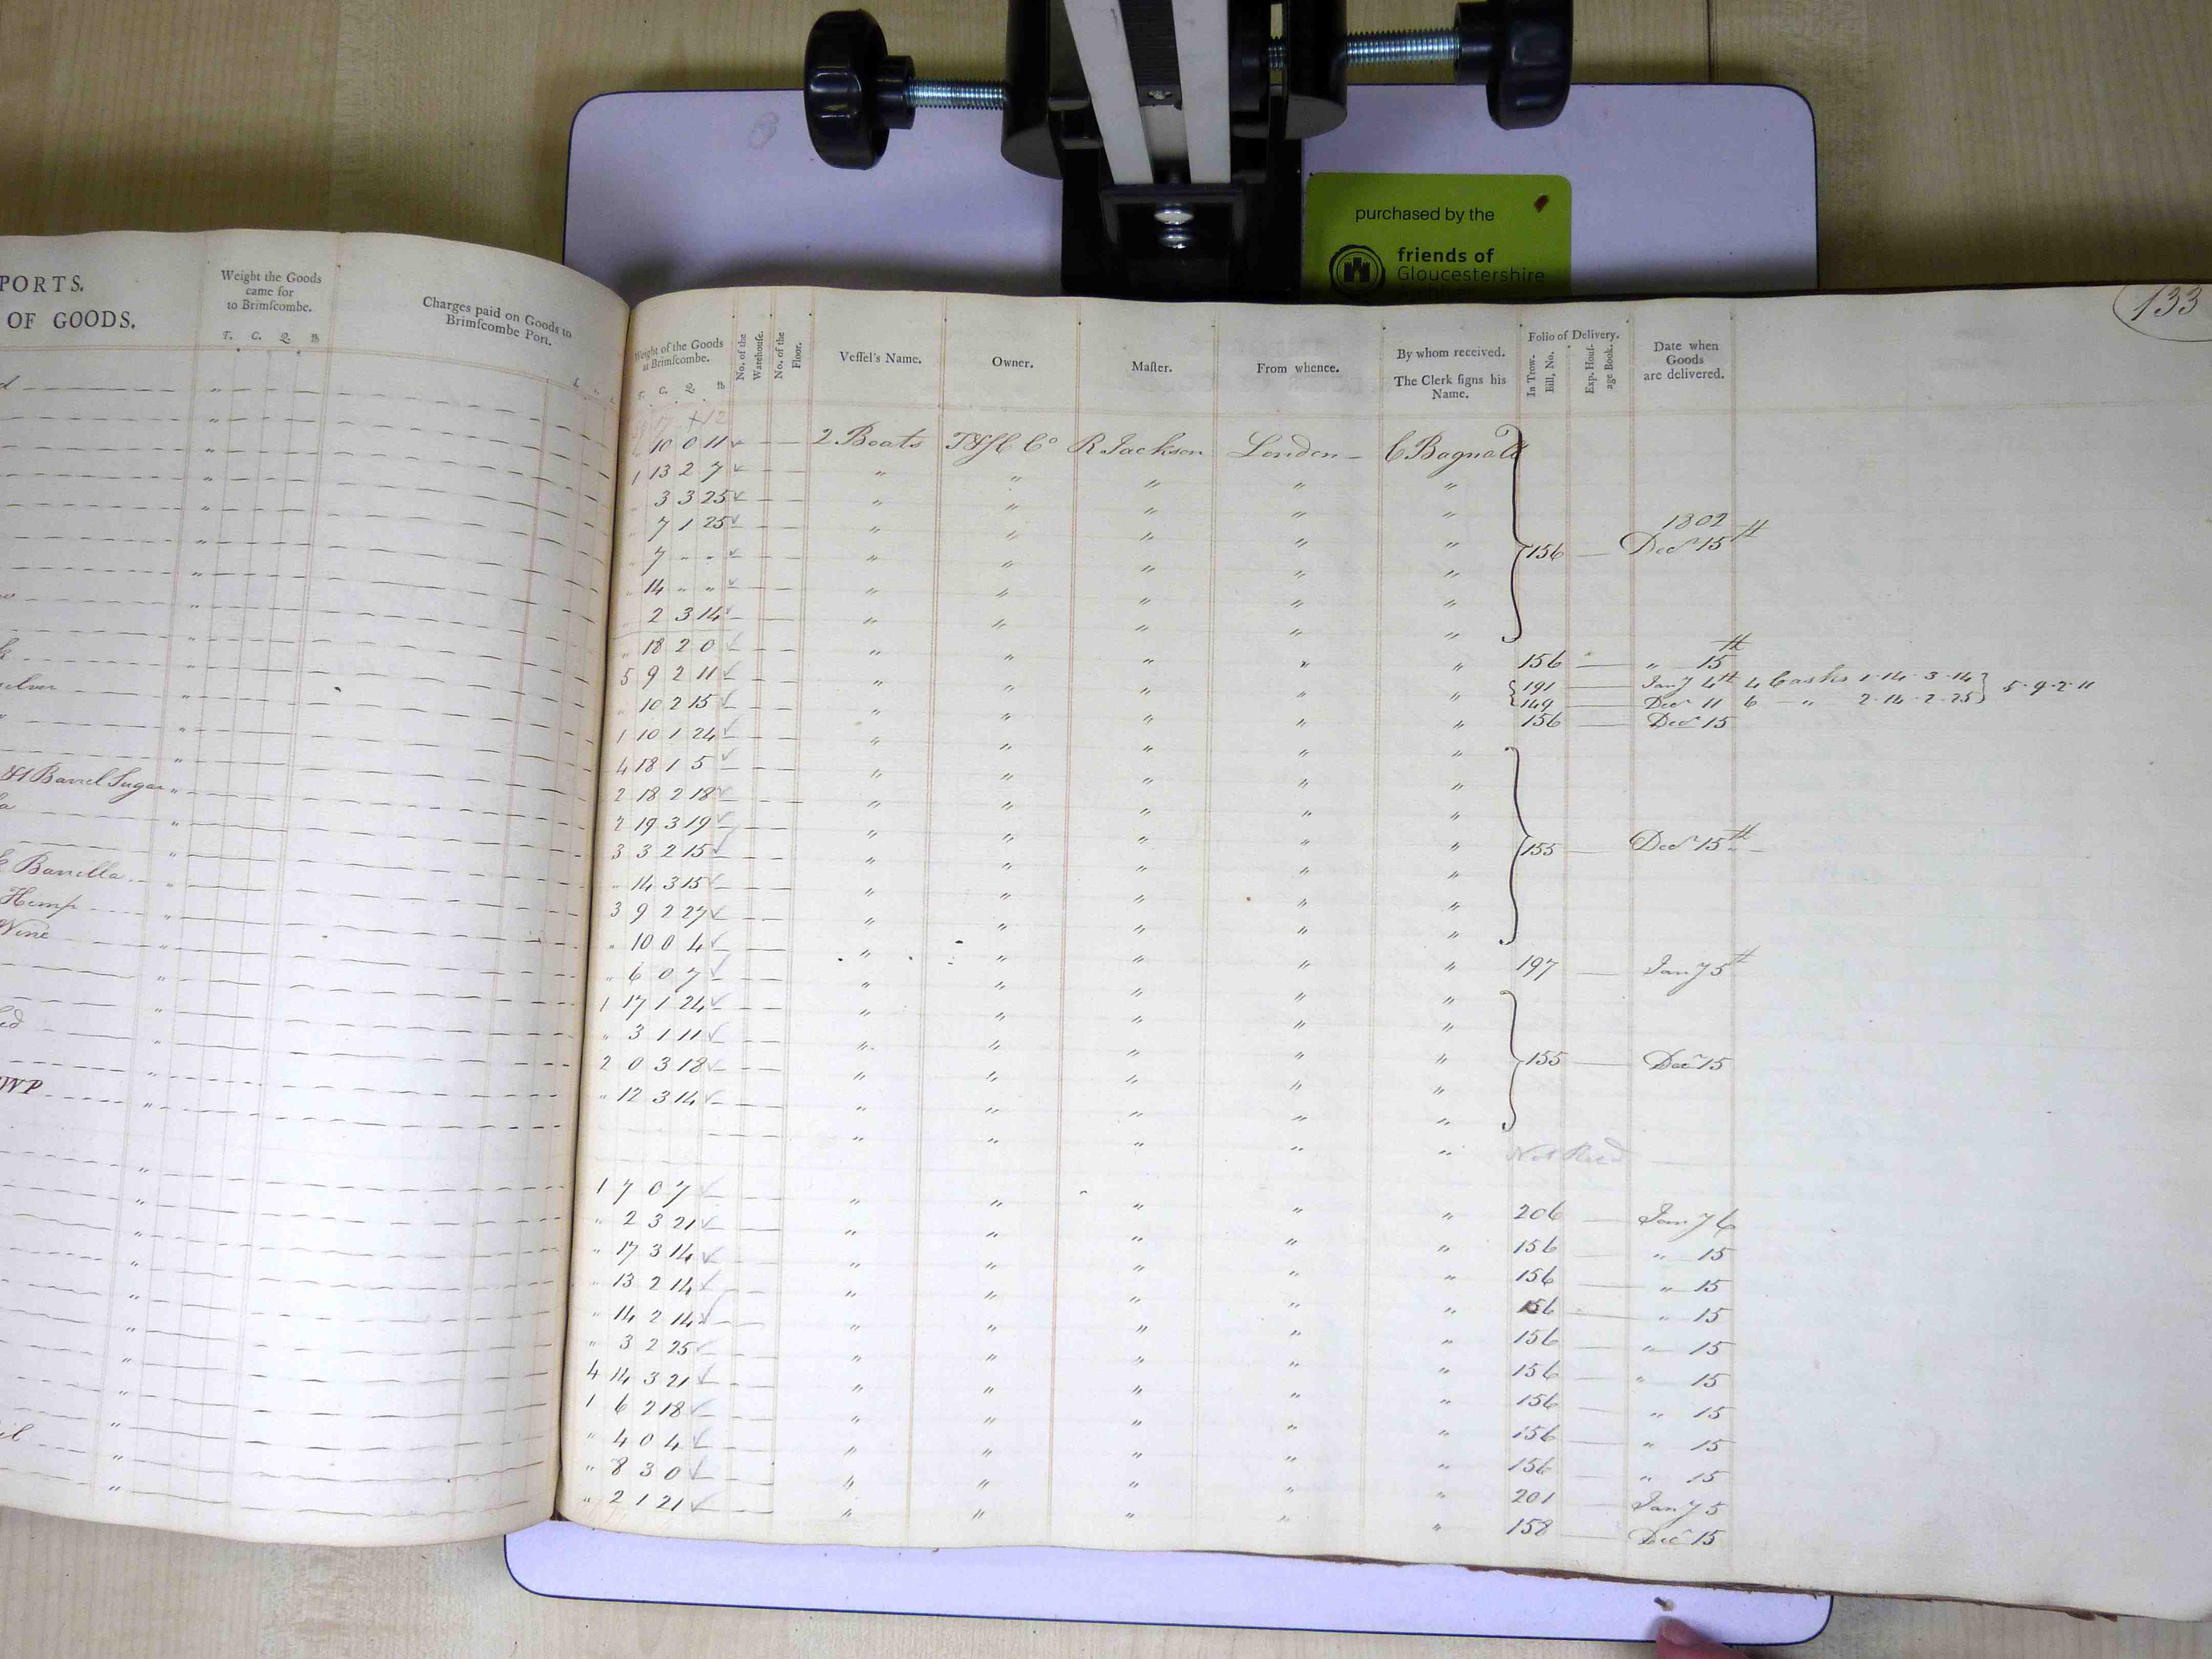 purchased by the
friends of
Gloucestershire
133
PORTS.
OF GOODS.
Weight the Goods
came for
to Brimſcombe.
T. C. Q. lb
Charges paid on Goods to
Brimſcombe Port.
Weight of the Goods
at Brimſcombe.
T. C. Q. lb
No. of the
Warehouſe.
No. of the
Floor.
Veſſel's Name.
Owner.
Maſter.
From whence.
By whom received.
The Clerk ſigns his
Name.
Folio of Delivery.
In Trow.
Bill, No.
Exp. Houſ-
age Book.
Date when
Goods
are delivered.
& Barrel Sugar
Barrilla
Hemp
Wine
WP
" 10 0 11 2 Boats R Jackson London C Bagnall
1 13 2 7 " " " " "
" 3 3 25 " " " " "
" 7 1 25 " " " " "
" 7 " " " " " " " 156 1802 Decr 15th
" 14 " " " " " " "
" 2 3 14 " " " " "
" 18 2 0 " " " " " 156 " 15th
5 9 2 11 " " " " " 191 Jany 4th 4 Casks 1.14.3.14
149 Decr 11 6 " 2.14.2.25 5.9.2.11
" 10 2 15 " " " " " 156 Decr 15
1 10 1 24 " " " " "
4 18 1 5 " " " " "
2 18 2 18 " " " " "
2 19 3 19 " " " " " 155 Decr 15th
3 3 2 15 " " " " "
" 14 3 15 " " " " "
3 9 2 27 " " " " "
" 10 0 4 " " " " " 197 Jany 5th
" 6 0 7 " " " " "
1 17 1 24 " " " " "
" 3 1 11 " " " " " 155 Decr 15
2 0 3 18 " " " " "
" 12 3 14 " " " " "
" " " " " Not Recd
1 7 0 7 " " " " " 206 Jany 6
" 2 3 21 " " " " " 156 " 15
" 17 3 14 " " " " " 156 " 15
" 13 2 14 " " " " " 156 " 15
" 14 2 14 " " " " " 156 " 15
" 3 2 25 " " " " " 156 " 15
4 14 3 21 " " " " " 156 " 15
1 6 2 18 " " " " " 156 " 15
" 4 0 4 " " " " " 156 " 15
" 8 3 0 " " " " " 201 Jany 5
" 2 1 21 " " " " " 158 Decr 15